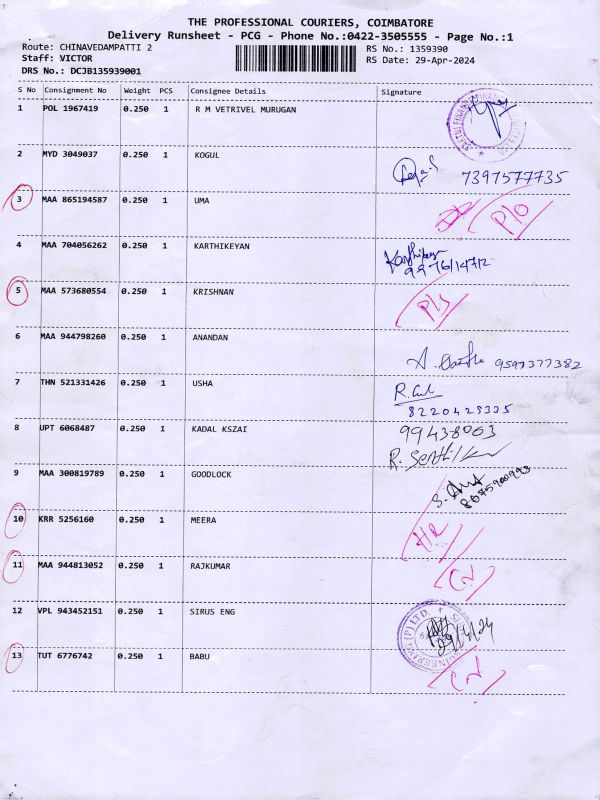 THE PROFESSIONAL COURIERS, COIMBATORE
Delivery Runsheet - PCG - Phone No.:0422-3505555 - Page No.:1
Route: CHINAVEDAMPATTI 2 RS No.: 1359390
Staff: VICTOR RS Date: 29-Apr-2024
DRS No.: DCJB135939001
S No Consignment No Weight PCS Consignee Details Signature
1 POL 1967419 0.250 1 R M VETRIVEL MURUGAN
2 MYD 3049037 0.250 1 KOGUL
7397577735
3 MAA 865194587 0.250 1 UMA
P/O
4 MAA 704056262 0.250 1 KARTHIKEYAN
Karthikeyan
5 MAA 573680554 0.250 1 KRISHNAN
6 MAA 944798260 0.250 1 ANANDAN
9597377382
7 THN 521331426 0.250 1 USHA
8220428335
8 UPT 6068487 0.250 1 KADAL KSZAI
R. Senthil
9 MAA 300819789 0.250 1 GOODLOCK
10 KRR 5256160 0.250 1 MEERA
HR
11 MAA 944813052 0.250 1 RAJKUMAR
12 VPL 943452151 0.250 1 SIRUS ENG
29/4/24
13 TUT 6776742 0.250 1 BABU